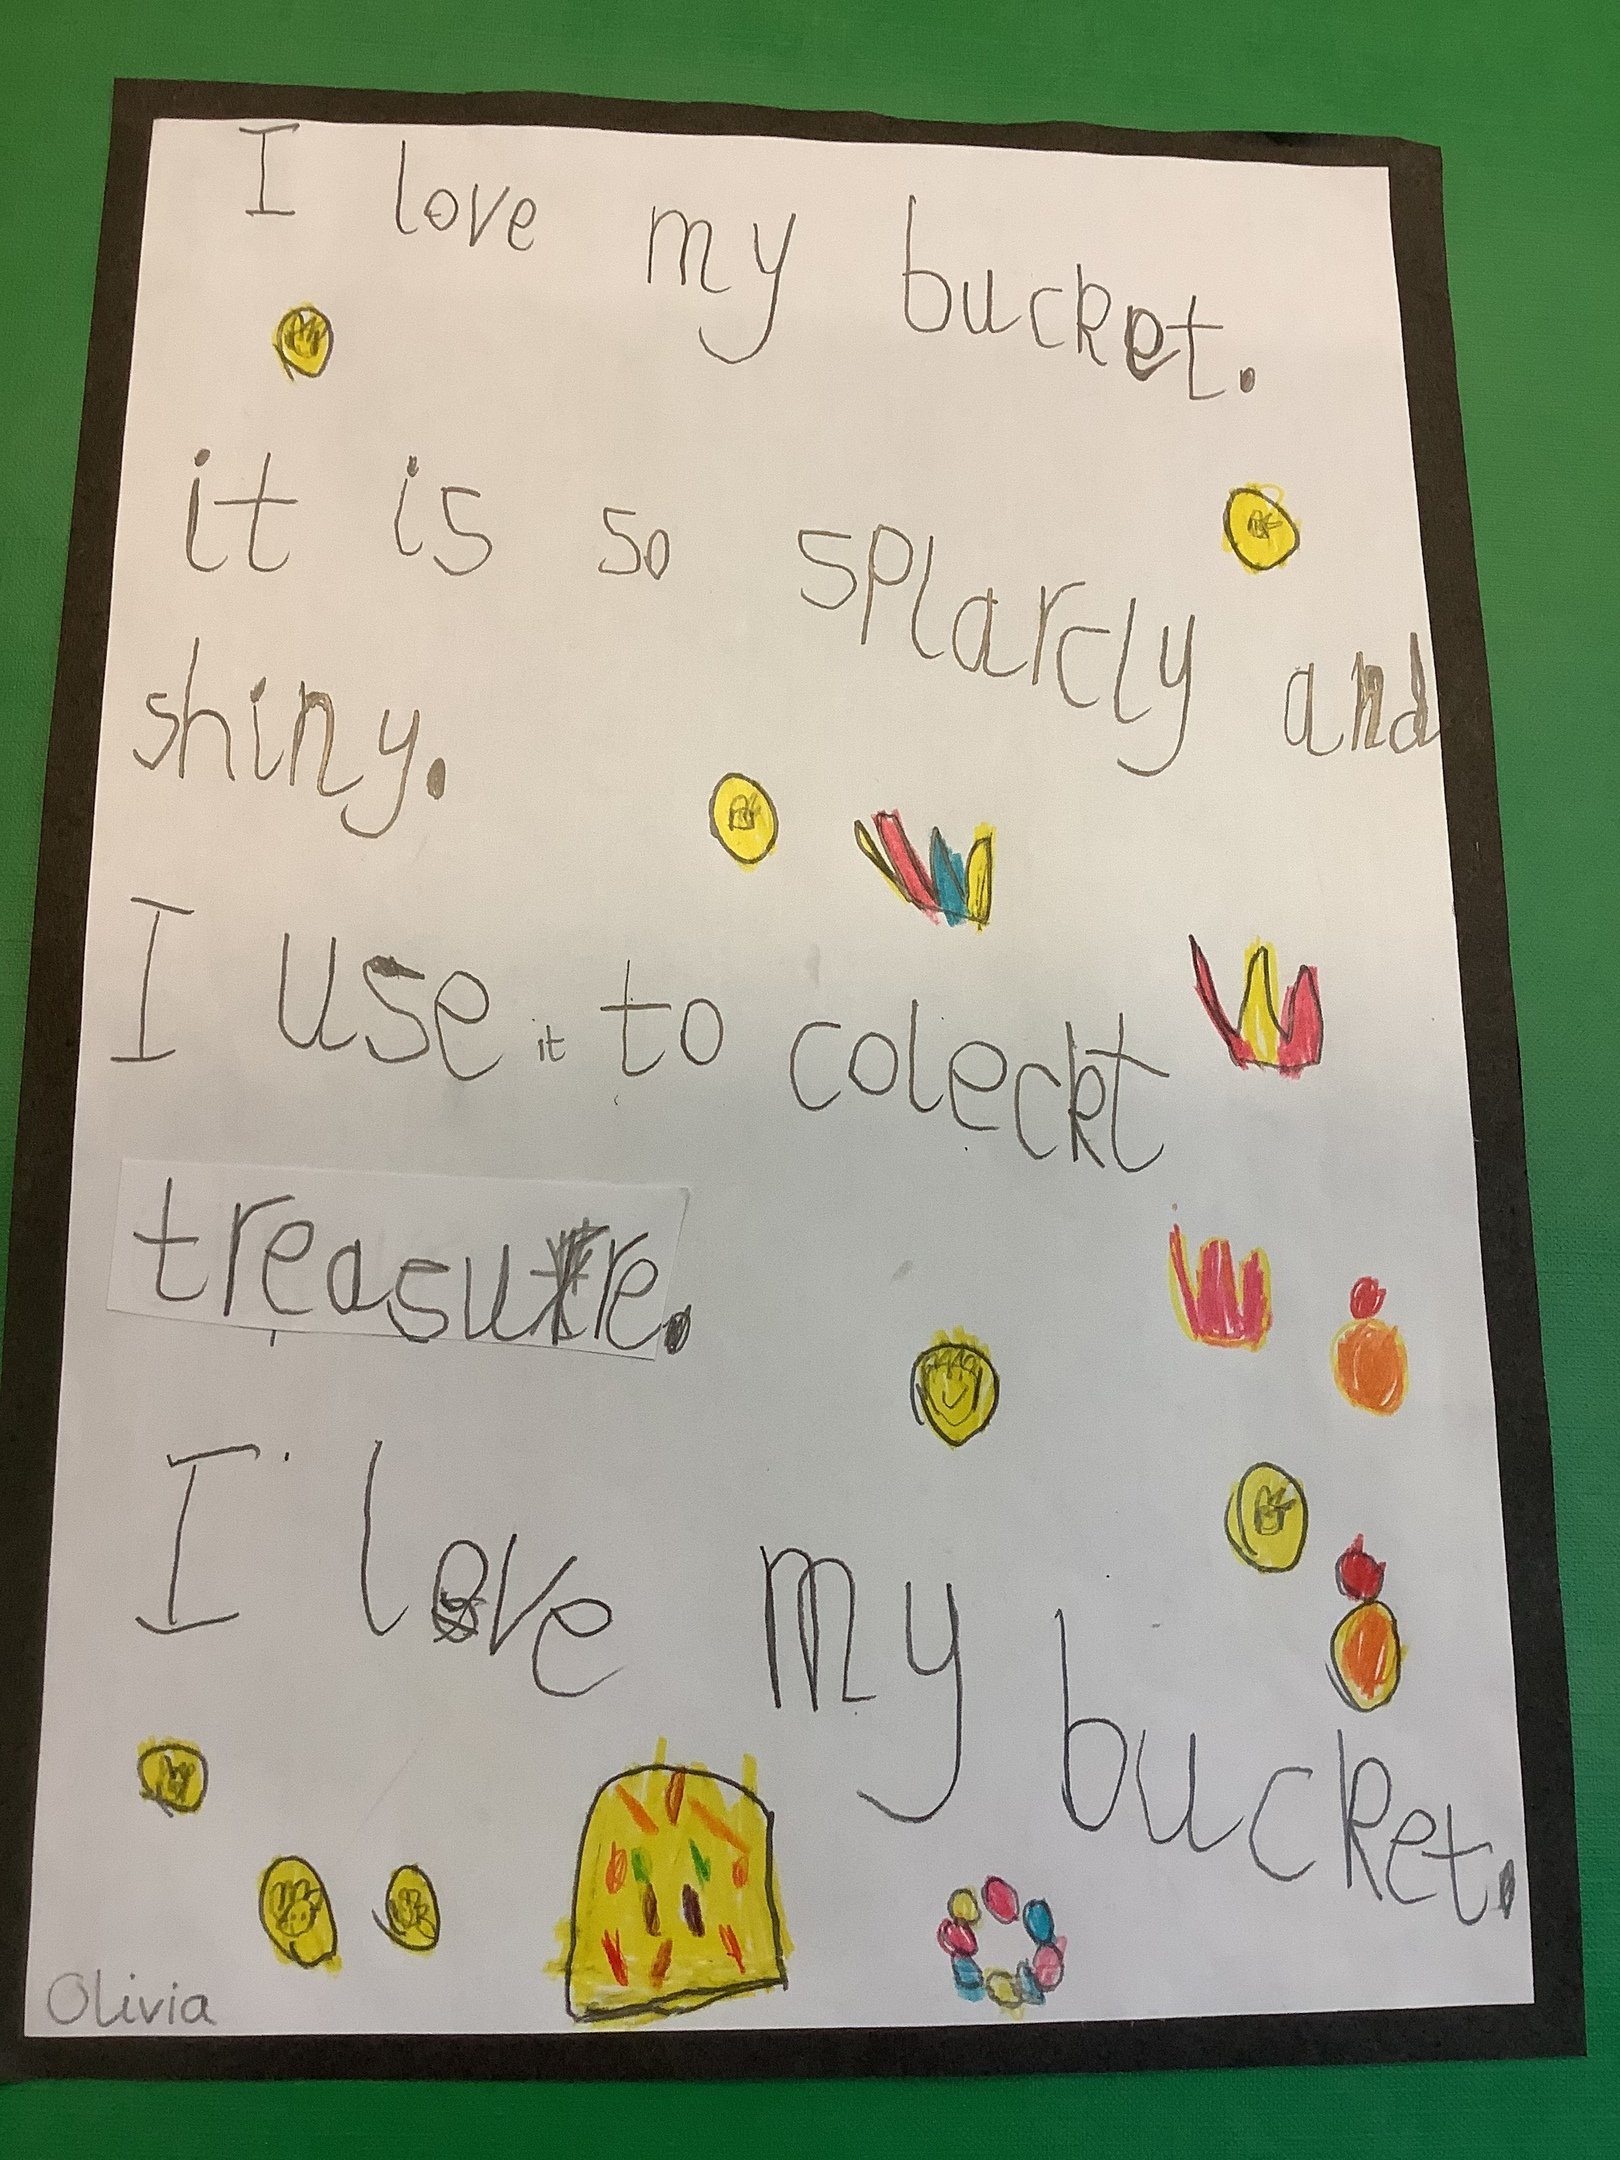 I love my bucket.
it is so splarcly and
shiny.
I use it to coleckt
treasure.
I love my bucket.
Olivia